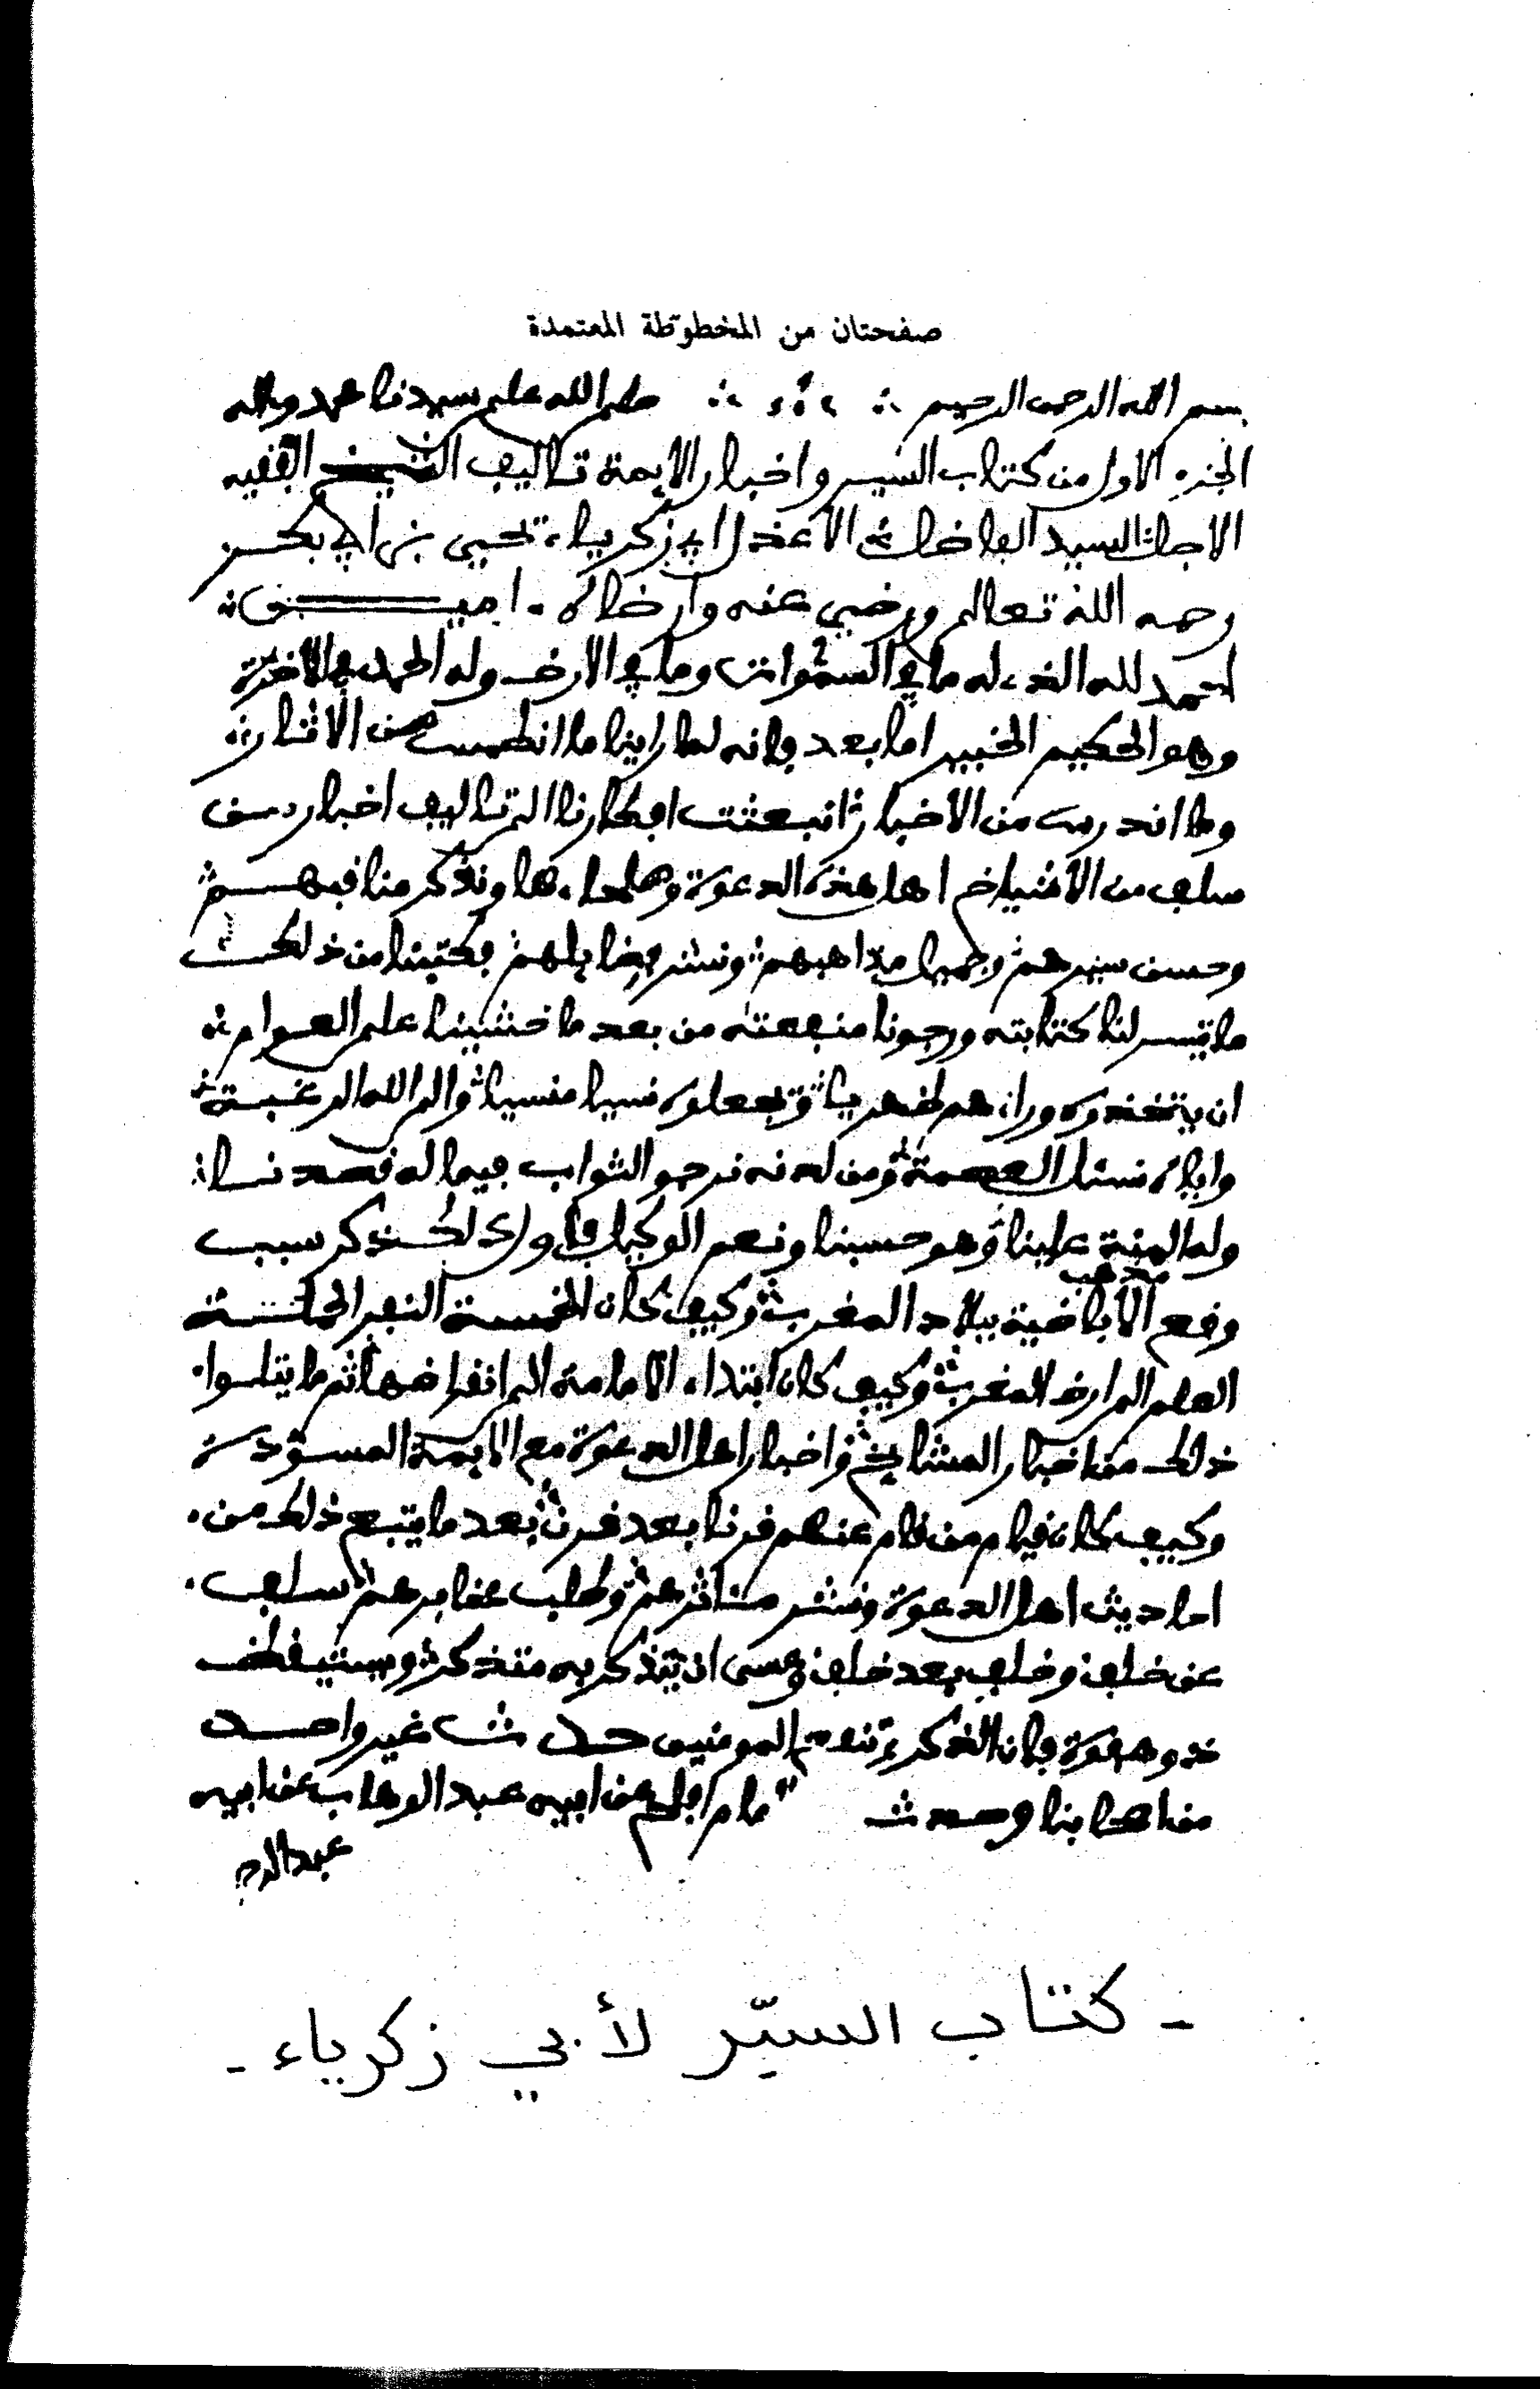 صفحتان من المخطوطة المعتمدة
بسم الله الرحمن الرحيم صلى الله على سيدنا محمد وءاله
الجزء الاول من كتاب السير واخبار الايمة تاليف الشيخ الفقيه
الاجل السيد الفاضل الاعدل ابي زكرياء يحيى بن ابي بكر
رحمه الله تعالى ورضي عنه وارضاه . اميـــن
الحمد لله الذي له ما في السموات وما في الارض وله الحمد في الاخرة
وهو الحكيم الخبير اما بعد فانه لما راينا ما انطمس من الاثار
وما اندرس من الاخبار انبعثت افكارنا الى تاليف اخبار من
سلف من الاشياخ اهل هذه الدعوة وعلماءها ونذكر مناقبهم
وحسن سيرهم وجميل مذاهبهم ونشر فضايلهم فكتبنا من ذلك
ما تيسر لنا كتابته ورجونا منفعته من بعد ما خشينا على العوام
ان يتخذوه وراءهم ظهريا وتجعلوه نسيا منسيا والى الله الرغبة
واياه نسئل العصمة ومن لدنه نرجو الثواب فيما له قصدنا
وله المنة علينا وهو حسبنا ونعم الوكيل فاول ذلك ذكر سبب
وقع مذهب الاباضية ببلاد المغرب وكيف كان الخمسة النفر الحملة
العلم الى ارض المغرب وكيف كان ابتداء الامامة الى انقراضها ثم ما يتلوا
ذلك من اخبار المشايخ واخبار اهل الدعوة مع الايمة المسودة
وكيف كان قيام من قام عنهم قرنا بعد قرن بعد ما يتبع ذلك من
احاديث اهل الدعوة ونشر مئاثرهم وطلب عنابرهم سلف
عن خلف وخلف بعد خلف وعسى ان يتذكر به متذكر ويستيقظ
ذو هفوة فان الذكرى تنفع المومنين حدث غير واحد
من اصحابنا وحدث مام افلح عن ابيه عبد الوهاب عن ابيه
عبد الرحمن
- كتاب السيّر لأبي زكرياء -